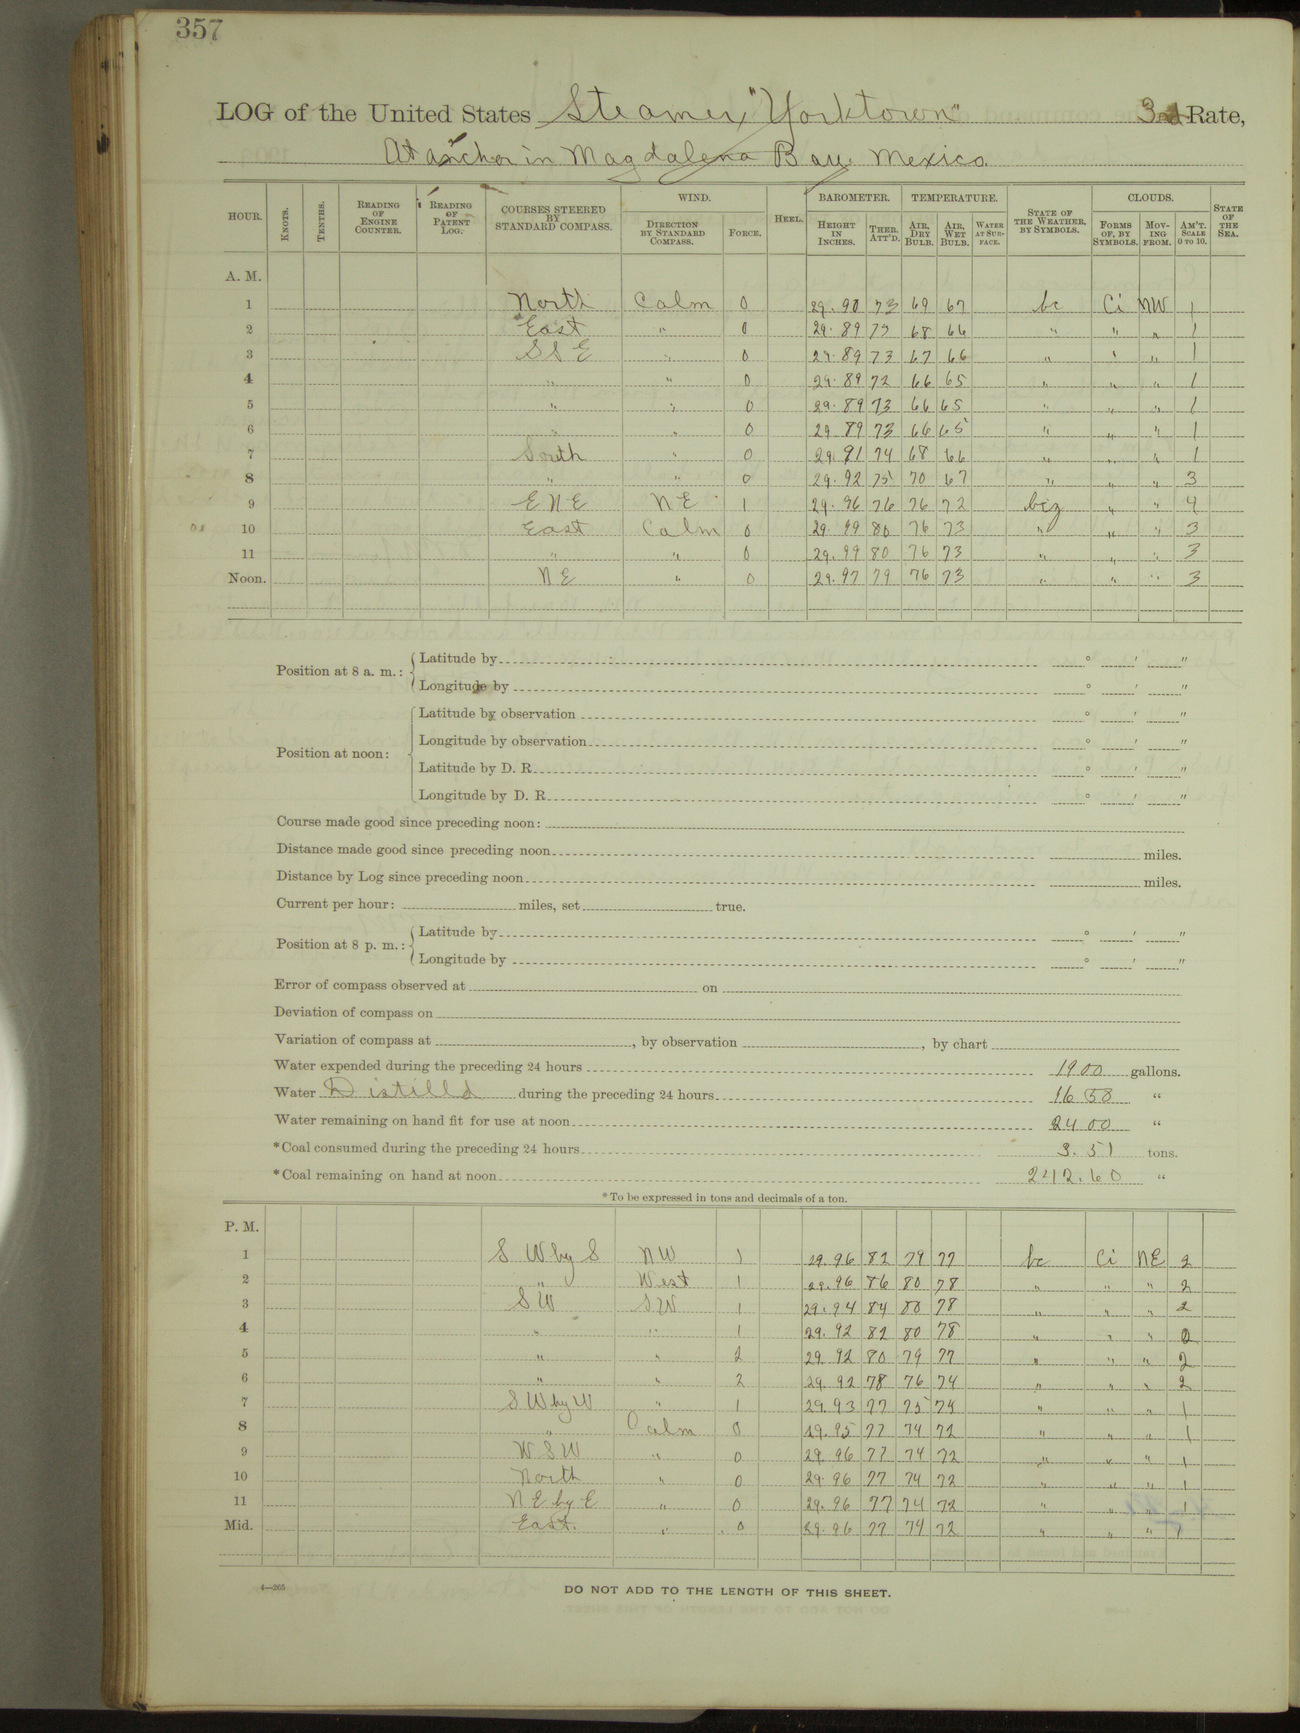 357
LOG of the United States Steamer, "Yorktown" 3rd Rate,
At anchor in Magdalena Bay Mexico.
HOUR. KNOTS. TENTHS. READING OF ENGINE COUNTER. READING OF PATENT LOG. COURSES STEERED BY STANDARD COMPASS. WIND. DIRECTION BY STANDARD COMPASS. FORCE. HEEL. BAROMETER. HEIGHT IN INCHES. THER. ATT'D. TEMPERATURE. AIR, DRY BULB. AIR, WET BULB. WATER AT SURFACE. STATE OF THE WEATHER, BY SYMBOLS. CLOUDS. FORMS OF, BY SYMBOLS. MOVING FROM. AM'T. SCALE 0 TO 10. STATE OF THE SEA.
A. M.
1 North Calm 0 29.90 73 69 67 bc Ci NW 1
2 East " 0 29.89 73 68 66 " " " 1
3 SSE " 0 29.89 73 67 66 " " " 1
4 " " 0 29.89 72 66 65 " " " 1
5 " " 0 29.89 73 66 65 " " " 1
6 " " 0 29.89 73 66 65 " " " 1
7 South " 0 29.91 74 68 66 " " " 1
8 " " 0 29.92 75 70 67 " " " 3
9 ENE NE 1 29.96 76 76 72 bcz " " 4
10 East Calm 0 29.99 80 76 73 " " " 3
11 " " 0 29.99 80 76 73 " " " 3
Noon. NE " 0 29.97 79 76 73 " " " 3
Position at 8 a. m.: Latitude by ° ' "
Longitude by ° ' "
Position at noon: Latitude by observation ° ' "
Longitude by observation ° ' "
Latitude by D. R. ° ' "
Longitude by D. R. ° ' "
Course made good since preceding noon:
Distance made good since preceding noon miles.
Distance by Log since preceding noon miles.
Current per hour: miles, set true.
Position at 8 p. m.: Latitude by ° ' "
Longitude by ° ' "
Error of compass observed at on
Deviation of compass on
Variation of compass at , by observation , by chart
Water expended during the preceding 24 hours 1900 gallons.
Water Distilld during the preceding 24 hours 1658 "
Water remaining on hand fit for use at noon 2400 "
*Coal consumed during the preceding 24 hours 3.51 tons.
*Coal remaining on hand at noon 242.60 "
*To be expressed in tons and decimals of a ton.
P. M.
1 SW by S NW 1 29.96 82 79 77 bc Ci NE 2
2 " West 1 29.96 86 80 78 " " " 2
3 SW SW 1 29.94 84 80 78 " " " 2
4 " " 1 29.92 82 80 78 " " " 2
5 " " 2 29.92 80 79 77 " " " 2
6 " " 2 29.92 78 76 74 " " " 2
7 SW by W " 1 29.93 77 75 74 " " " 1
8 " Calm 0 29.95 77 74 72 " " " 1
9 WSW " 0 29.96 77 74 72 " " " 1
10 North " 0 29.96 77 74 72 " " " 1
11 NE by E " 0 29.96 77 74 72 " " " 1
Mid. East. " 0 29.96 77 74 72 " " " 1
4—265
DO NOT ADD TO THE LENGTH OF THIS SHEET.